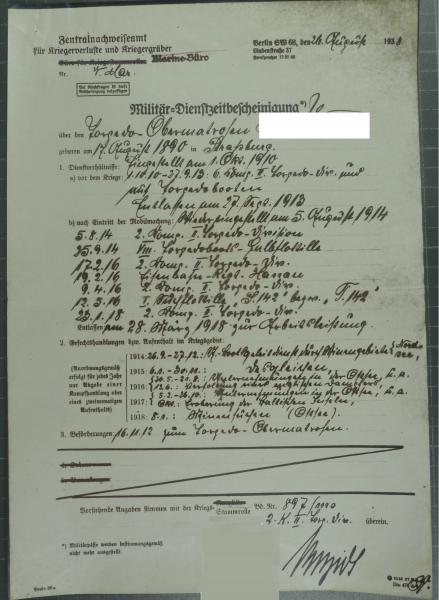 Zentralnachweiseamt
für Kriegerverluste und Kriegergräber
Marine-Büro
Nr.
Bei Rückfragen ist diese
Berlin SW 68, den 26. August 193
Lindenstraße 37
Militär-Dienstzeitbescheinigung*)
über den Torpedo-Obermatrosen
geboren am 17. August 1890 in Straßburg.
1. Dienstverhältnisse: Eingestellt am 1. Okt. 1910
a) vor dem Kriege: 1.10.10-27.9.13: 6. Komp. II. Torpedo-Div. und
auf Torpedobooten
Entlassen am 27. Sept. 1913
b) nach Eintritt der Mobilmachung: Wiedereingestellt am 5. August 1914
5.8.14 2. Komp. II. Torpedo-Division
25.9.14 VIII. Torpedoboots-Halbflottille
17.2.16 2. Komp. II. Torpedo-Div.
19.2.16 Eisenbahn-Regt. Hanau
9.4.16 2. Komp. II. Torpedo-Div.
12.3.16 I. "S.142" bezw. "T.142"
23.1.18 2. Komp. II. Torpedo-Div.
Entlassen am 28. März 1918 zur Arbeitsleistung.
2. Gefechtshandlungen bzw. Aufenthalt im Kriegsgebiet:
(Anordnungsgemäß
erfolgt für jedes Jahr
nur Angabe einer
Kampfhandlung oder
eines zweimonatigen
Aufenthalts)
1914: 26.9.-27.12.:
1915: 6.1.-30.11.: Desgleichen,
30.5.-21.8.: Unternehmungen in der Ostsee, u.a.
1916: 12.6.: Verfolgung eines englischen Dampfers,
5.2.-26.10.: Unternehmungen in der Ostsee, u.a.
1917: Okt.: Eroberung der baltischen Inseln,
1918: 8.1.: Minensuchen (Ostsee).
3. Beförderungen: 16.11.12 zum Torpedo-Obermatrosen.
Vorstehende Angaben stimmen mit der Kriegs-Stammrolle Bd. Nr. 897/1110
2. K. II. Torp. Div. überein.
*) Militärpässe werden bestimmungsgemäß
nicht mehr ausgestellt.